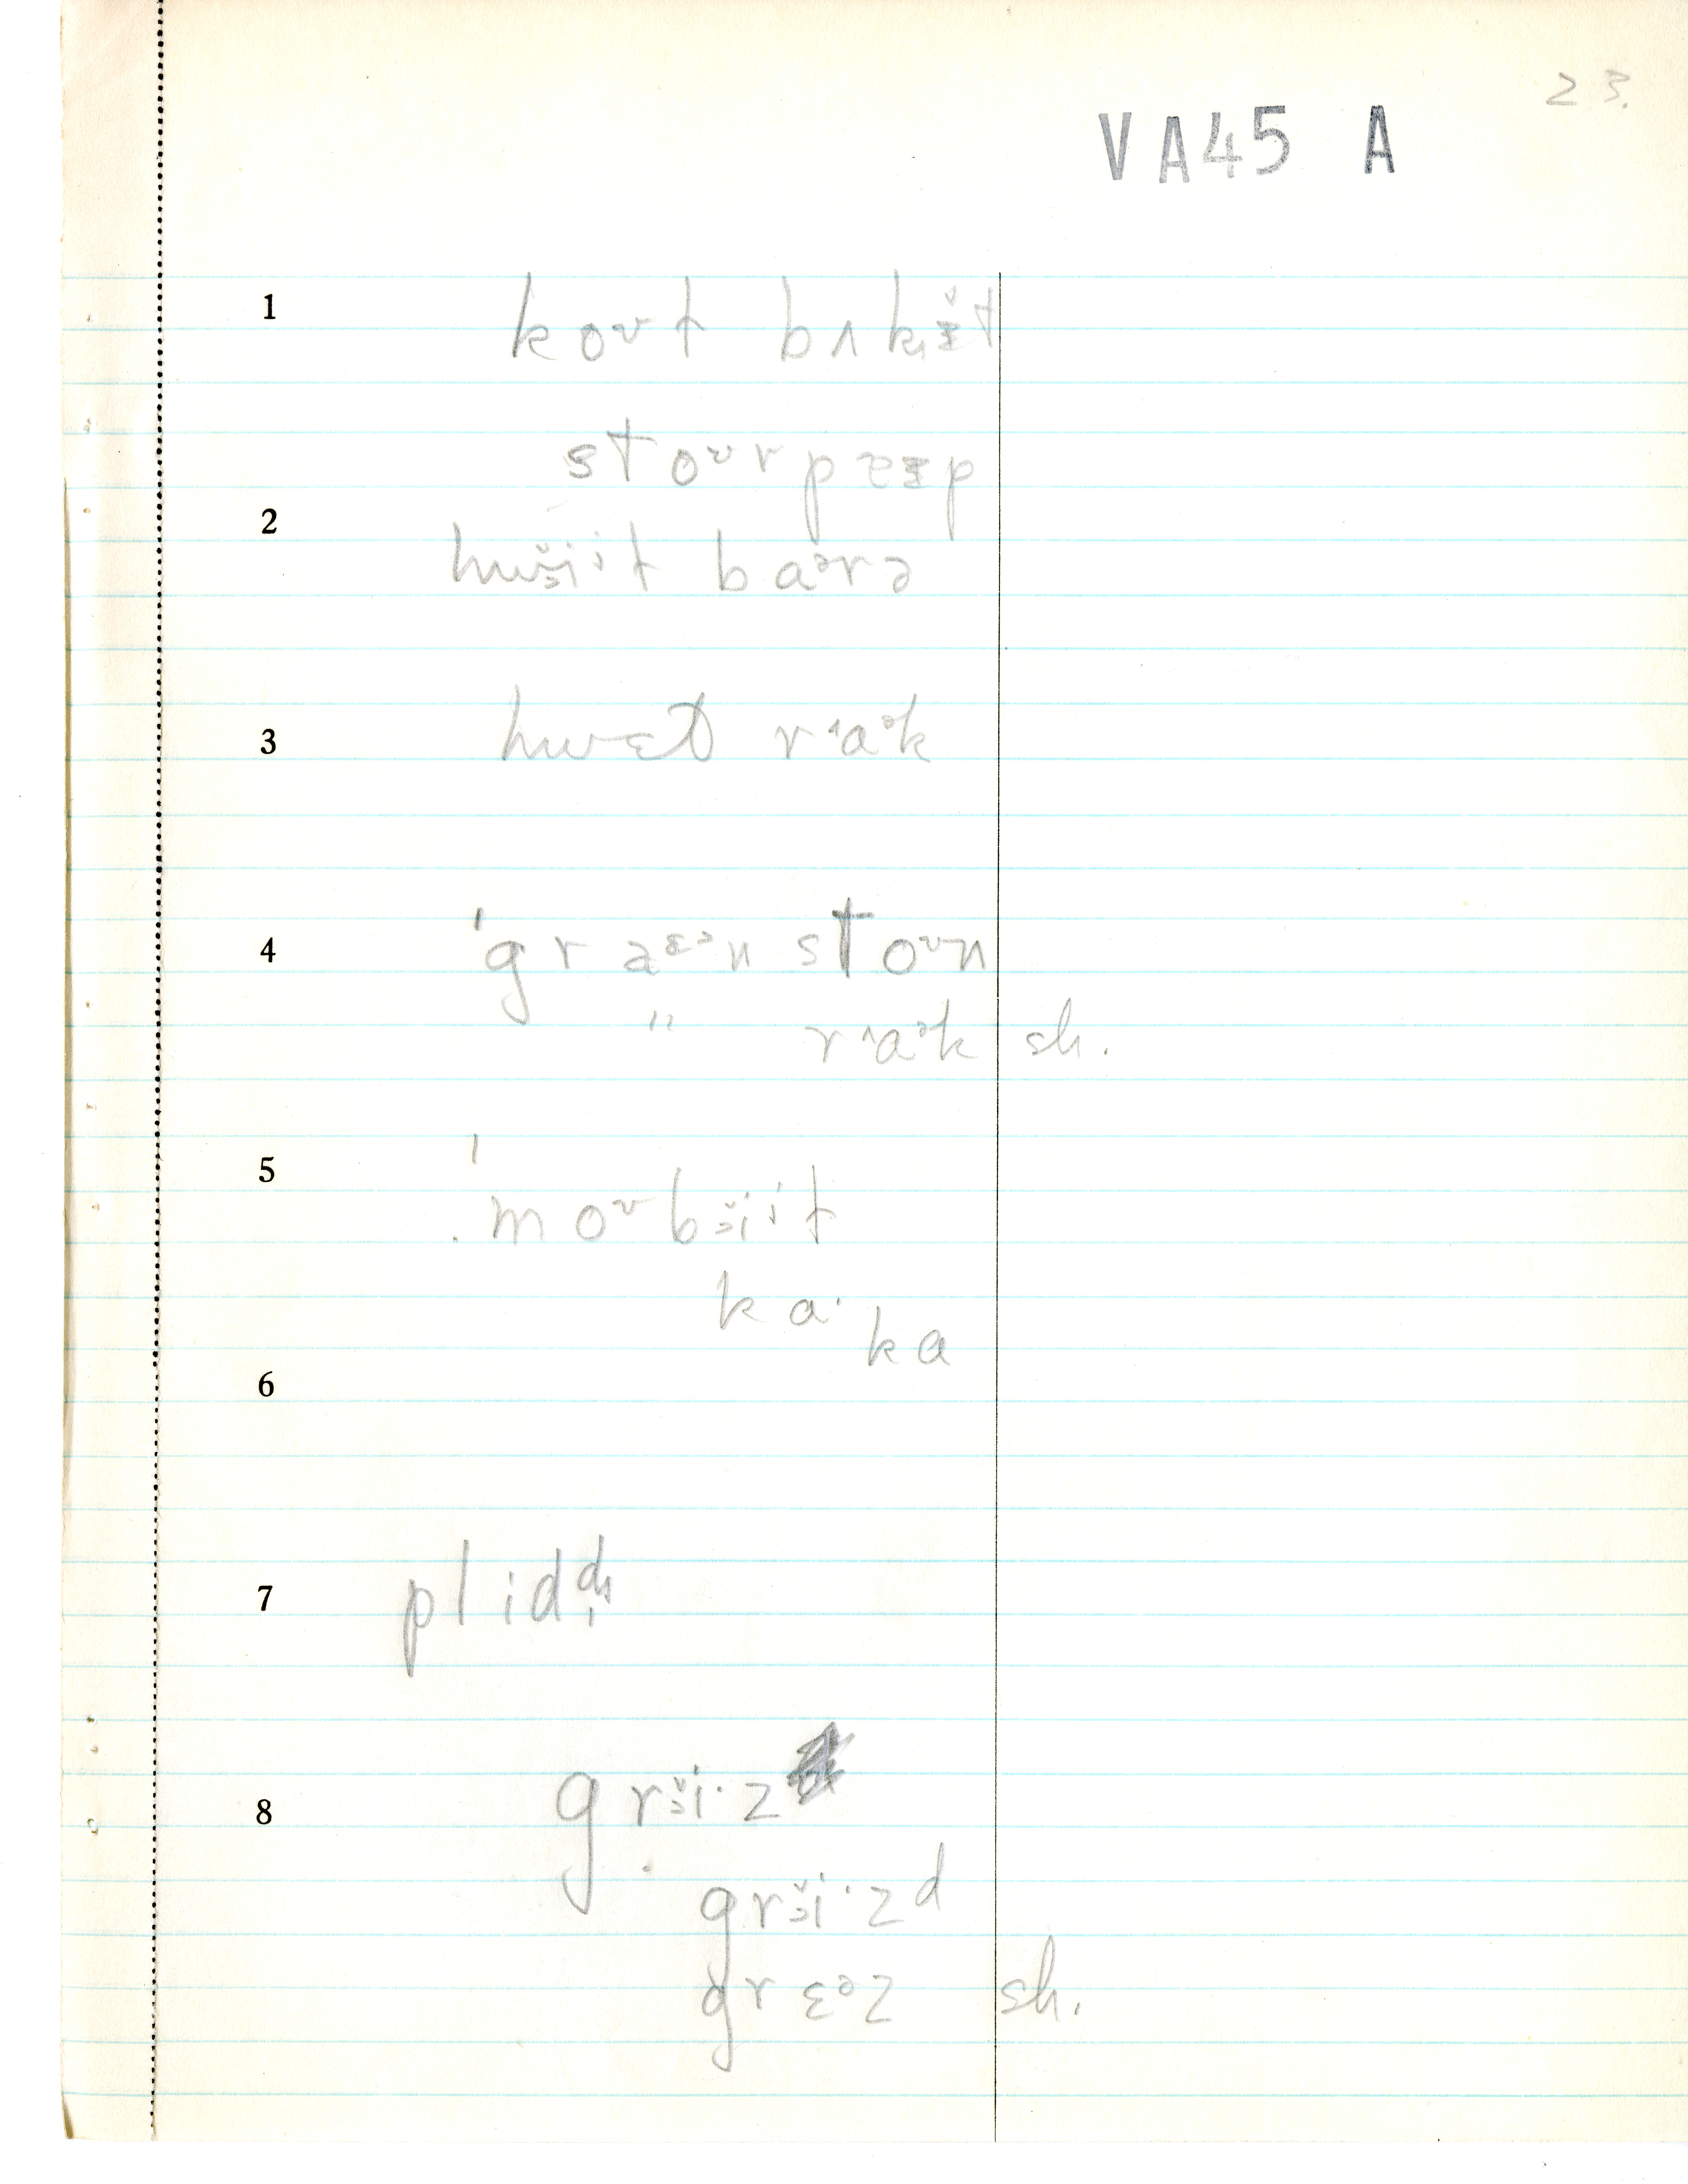 23.
VA45 A
1 koʊt bʌkɪ̌t
stoʊrpɪɪp
2 hwɪ̌iˈt baᵊrə
3 hwɛt rˈaᵊk
4 ˈgraɛᵊn stoʊn
" rˈaᵊk sh.
5 ˈmoʊbɪ̌iˈt
ka·
ka
6
7 plidd
8 grɪ̌i·z
grɪ̌i·zd
grɛᵊz sh.